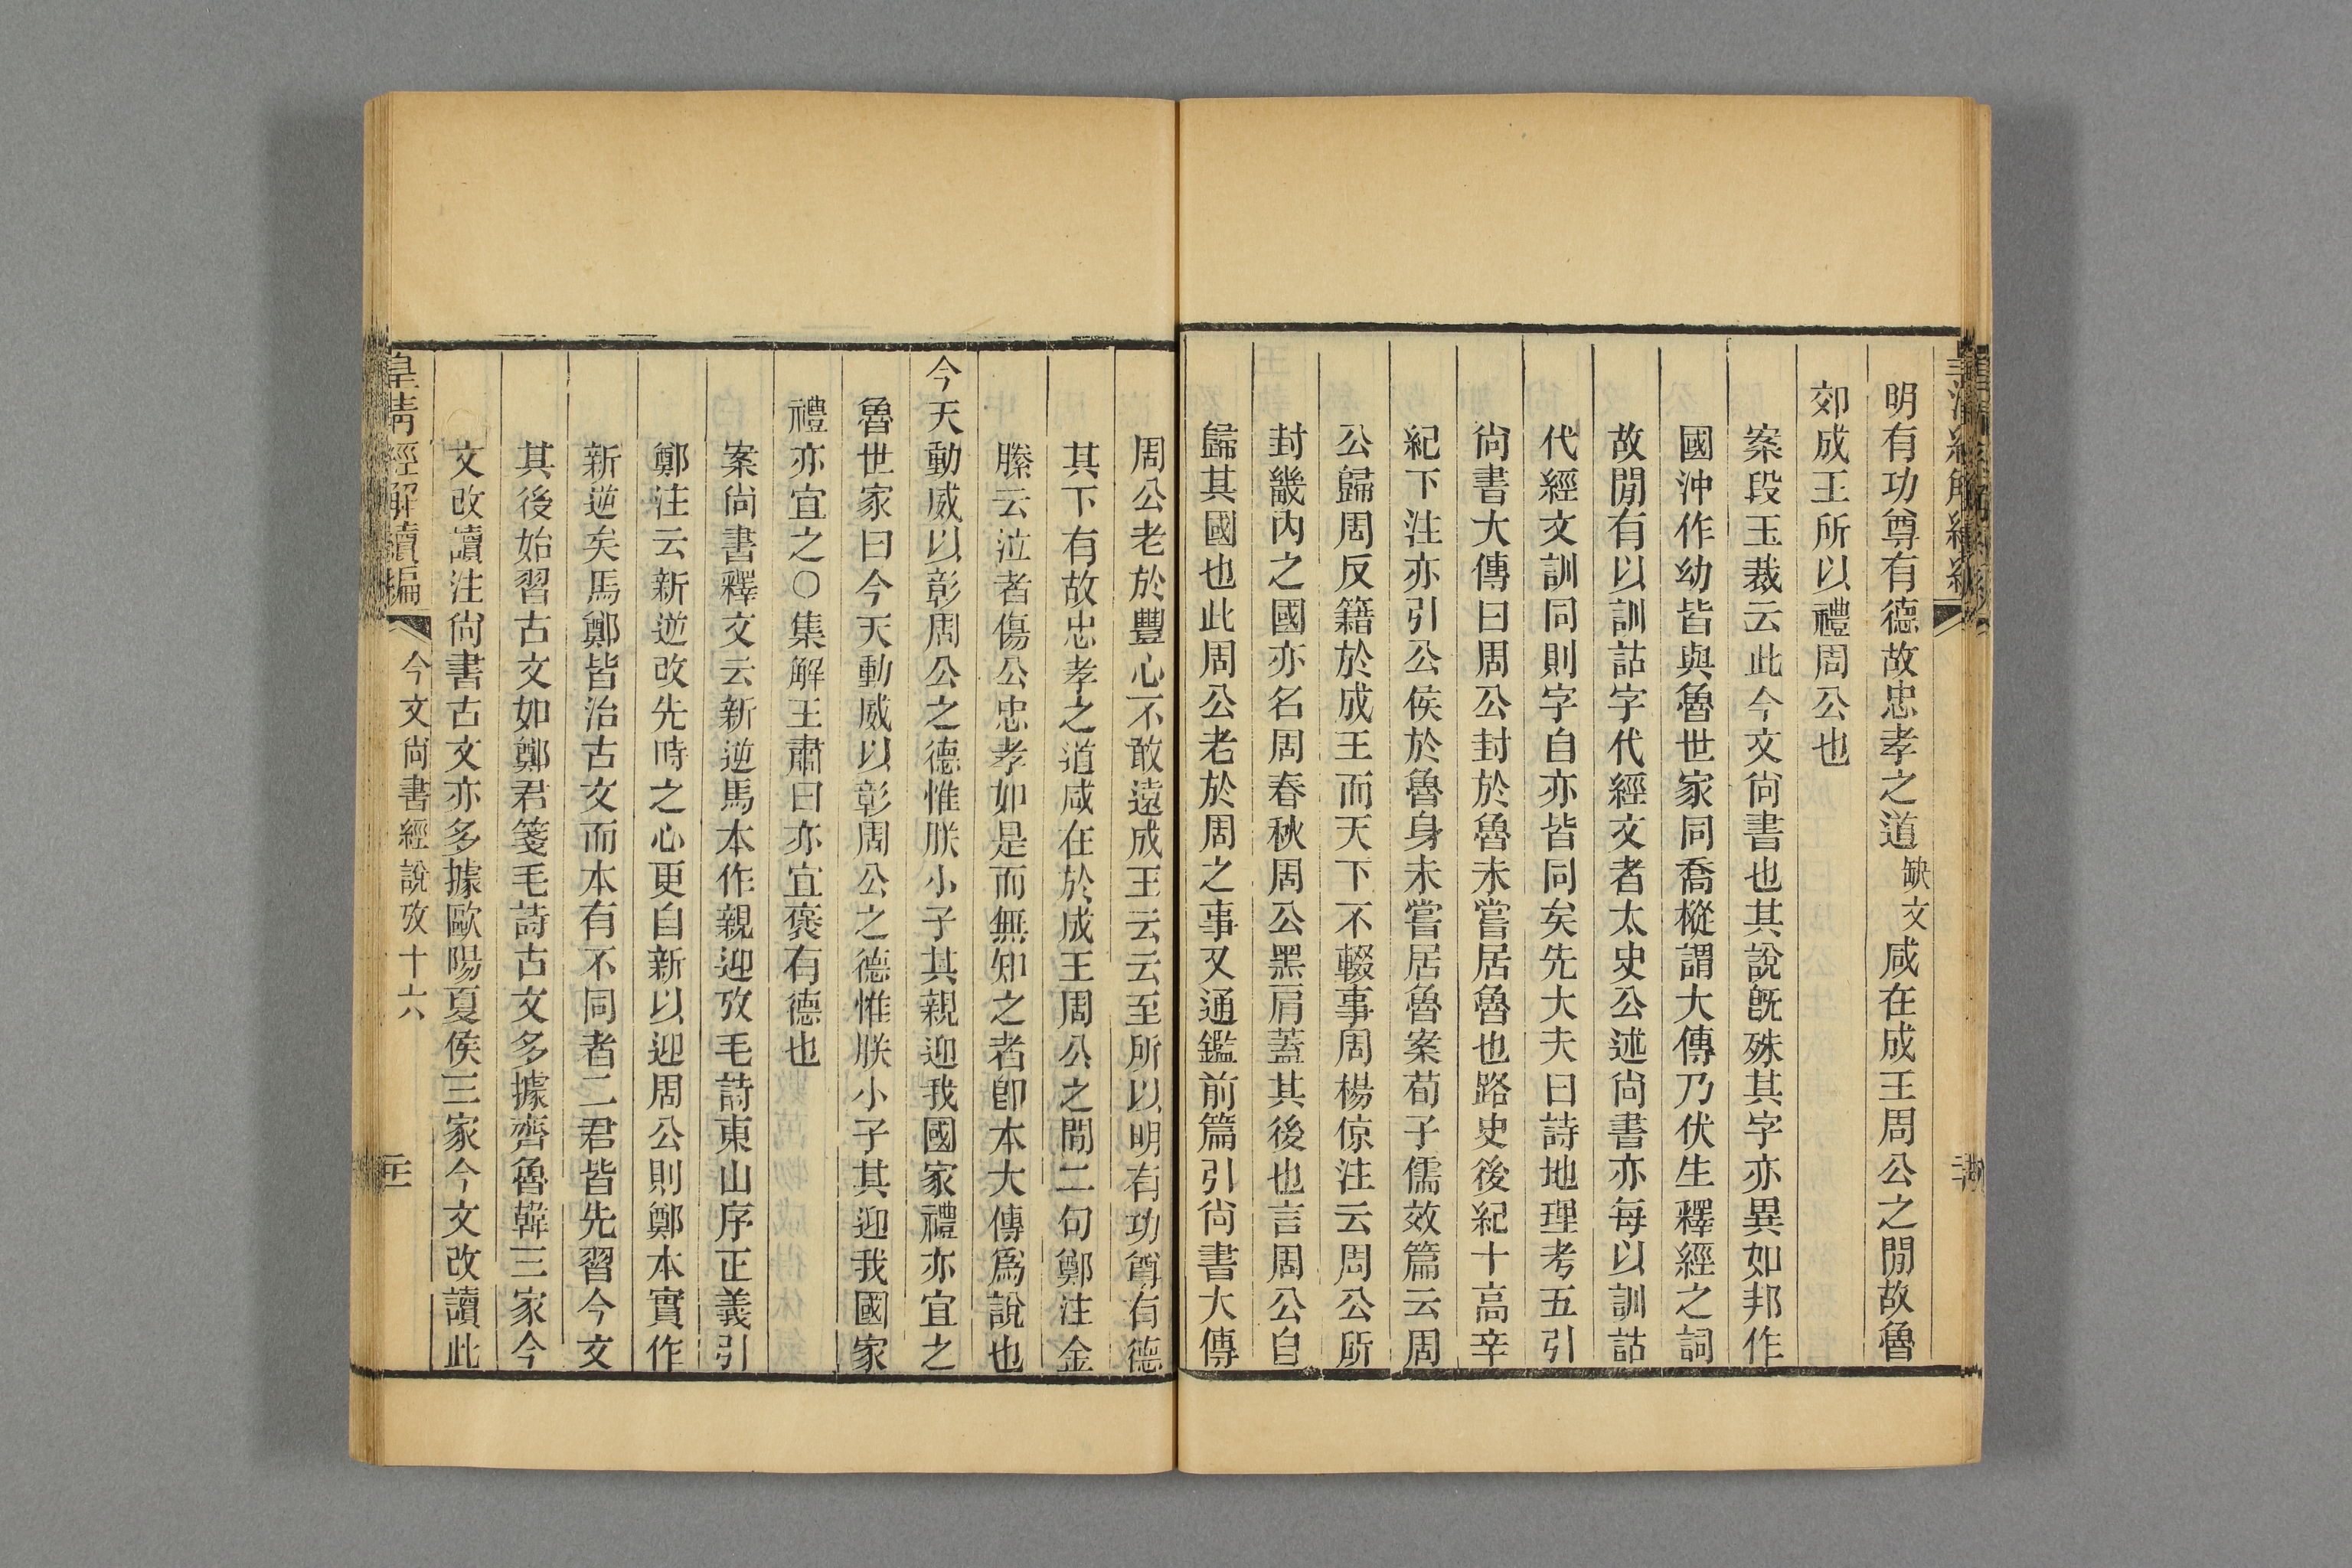 明有功尊有德故忠孝之道缺文咸在成王周公之閒故魯
郊成王所以禮周公也
案段玉裁云此今文尙書也其說旣殊其字亦異如邦作
國沖作幼皆與魯世家同喬樅謂大傳乃伏生釋經之詞
故閒有以訓詁字代經文者太史公述尙書亦每以訓詁
代經文訓同則字自亦皆同矣先大夫曰詩地理考五引
尙書大傳曰周公封於魯未嘗居魯也路史後紀十高辛
紀下注亦引公侯於魯身未嘗居魯案荀子儒效篇云周
公歸周反籍於成王而天下不輟事周楊倞注云周公所
封畿內之國亦名周春秋周公黑肩蓋其後也言周公自
歸其國也此周公老於周之事又通鑑前篇引尙書大傳
周公老於豐心不敢遠成王云云至所以明有功尊有德
其下有故忠孝之道咸在於成王周公之閒二句鄭注金
縢云泣者傷公忠孝如是而無知之者卽本大傳爲說也
今天動威以彰周公之德惟朕小子其親迎我國家禮亦宜之
魯世家曰今天動威以彰周公之德惟朕小子其迎我國家
禮亦宜之○集解王肅曰亦宜褒有德也
案尙書釋文云新逆馬本作親迎攷毛詩東山序正義引
鄭注云新逆改先時之心更自新以迎周公則鄭本實作
新逆矣馬鄭皆治古文而本有不同者二君皆先習今文
其後始習古文如鄭君箋毛詩古文多據齊魯韓三家今
文改讀注尙書古文亦多據歐陽夏侯三家今文改讀此
皇清經解續編
今文尙書經說攷十六